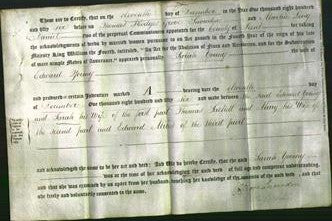 These are to Certify, that on the eleventh day of December in the Year One thousand eight hundred
and fifty six before us Samuel Phillips and Martin
two of the perpetual Commissioners appointed for the County of Kent for taking
the acknowledgments of deeds by married women pursuant to an Act passed in the Fourth year of the reign of his late
Majesty King William the Fourth, intituled, "An Act for the Abolition of Fines and Recoveries, and for the Substitution
of more simple Modes of Assurance" appeared personally Sarah Young the wife of
Edward Young
and produced a certain Indenture marked A bearing date the eleventh day
of December One thousand eight hundred and fifty six and made between the said Edward Young
and Sarah his Wife of the first part Thomas and Mary his Wife of
the second part and Edward of the third part
and acknowledged the same to be her act and deed: And We do hereby Certify, that the said Sarah Young
was at the time of her acknowledging the said deed of full age and competent understanding,
and that she was examined by us apart from her husband touching her knowledge of the contents of the said deed, and that she
freely and voluntarily consented to the same.